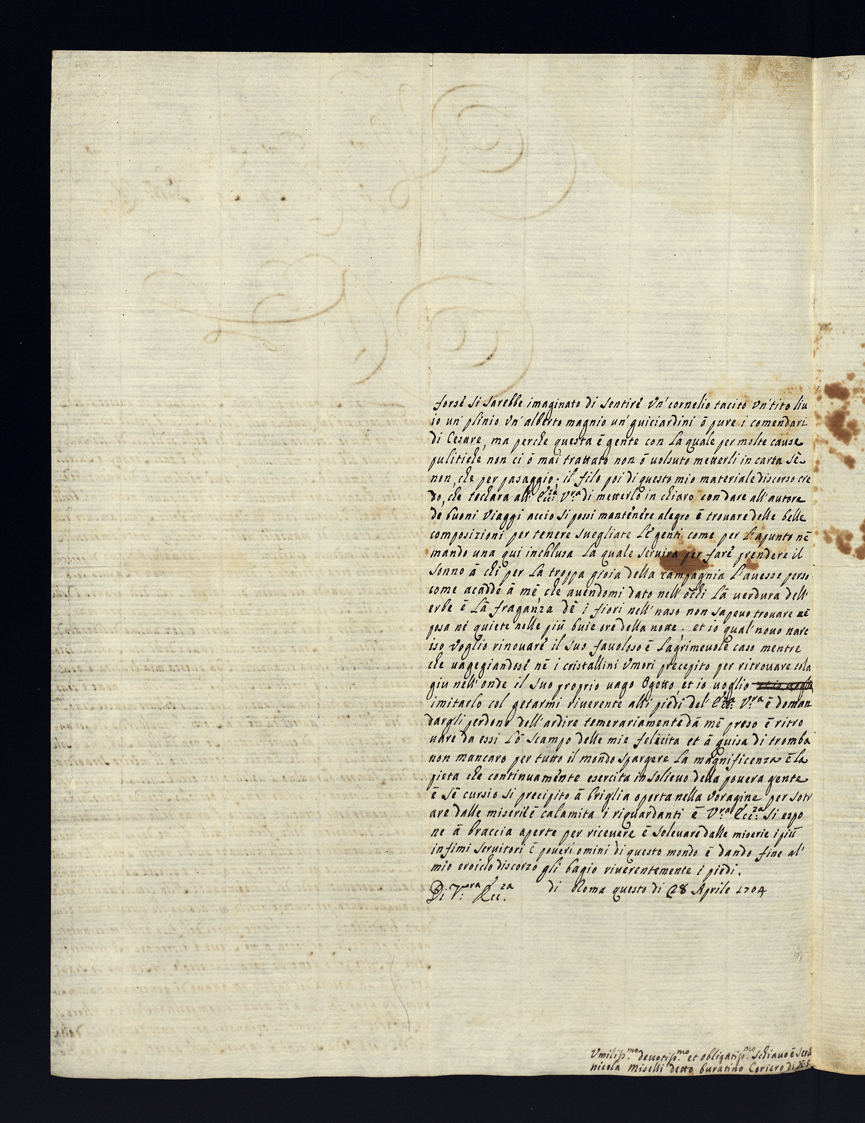 forsé si sarebbe imaginato di sentiré vn' cornelio tacito vn' tito liu
io un' plinio vn' alberto magnio un' guiciardini ō pure i comendari
di Cesare, ma perche questa ē gente con la quale per molte cause
pulitiche non ci ō mai trattato non ō volsuto metterli in carta sē
non, che per pasaggio; il filo poi di questo mio materiale discorso cre
do, che tochara all' Ecc:za V:ra di metterlo in chiaro, con dare all' autore
de buoni viaggi accio si possi manténére alegro ē trovare delle belle
composizioni per tenere suegliate lé genti come per l'apunto né
mando una qui inchlusa la quale servira per faré prendere il
sonno ā chi per la troppa gioia della campagnia l'auesse perso
come acaddé ā mé, che auendomi dato nell' ochi la verdura dell'
erbe ē la fraganza dé i fiori nell' naso non sapevo trovare né
posa né quiete nelle piū buie ore della notte. et io qual' novo narc
iso voglio rinovaré il suo favoloso ē lagrimevole caso mentre
che vagegiandosé né i cristallini vmori precepito per ritrovare cola
giu nell' onde il suo proprio vago ogetto, et io voglio
imitarlo col getarmi riverente alli piedi del' Ecc:za V:ra ē doman
dargli perdono dell' ardire temerariamente da mé preso ē ritro
vare da essi lo scampo delle mie felicita et ā guisa di tromba
non mancaro per tutto il mondo spargere la magnificenza ē la
pieta che continuaménte esercita in solievo della povera gente
ē sé cursio si precipito ā briglia operta nella voragine per sotr
are dalle miserié ē calamita i riguardanti ē V:ra Ecc:za si espo
ne ā braccia aperte per ricevere ē solevare dalle miserie i piū
infimi servitori ē poveri omini di questo mondo ē dando fine al'
mio eroico discorzo gli bagio riverentemente i piedi.
Di V:ra Ecc:za di Roma questo di 28 Aprile 1704
Vmilis:mo devotis:mo et obligatis:mo schiavo ē
nicola Miselli detto buratino Coriero di